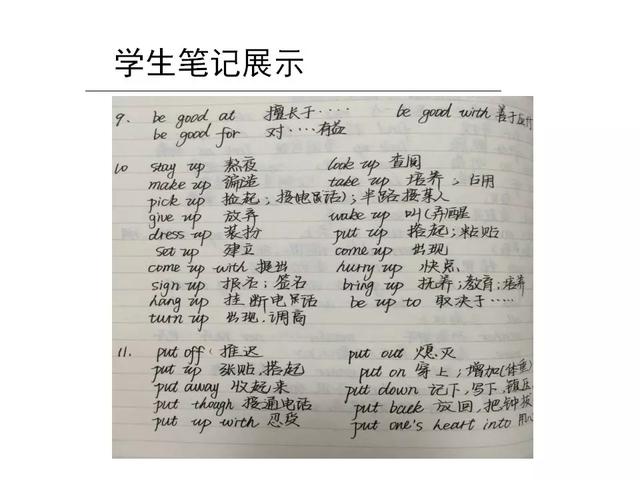 学生笔记展示
9. be good at 擅长于···· be good with 善于应付
be good for 对····有益
10 stay up 熬夜 look up 查阅
make up 编造 take up 培养；占用
pick up 捡起；接(电话)；半路接某人
give up 放弃 wake up 叫(弄)醒
dress up 装扮 put up 搭起；粘贴
set up 建立 come up 出现
come up with 提出 hurry up 快点
sign up 报名；签名 bring up 抚养；教育；培养
hang up 挂断电话 be up to 取决于·····
turn up 出现，调高
11. put off 推迟 put out 熄灭
put up 张贴，搭起 put on 穿上；增加(体重)
put away 收起来 put down 记下，写下，镇压
put though 接通电话 put back 放回，把钟拨
put up with 忍受 put one's heart into 用心